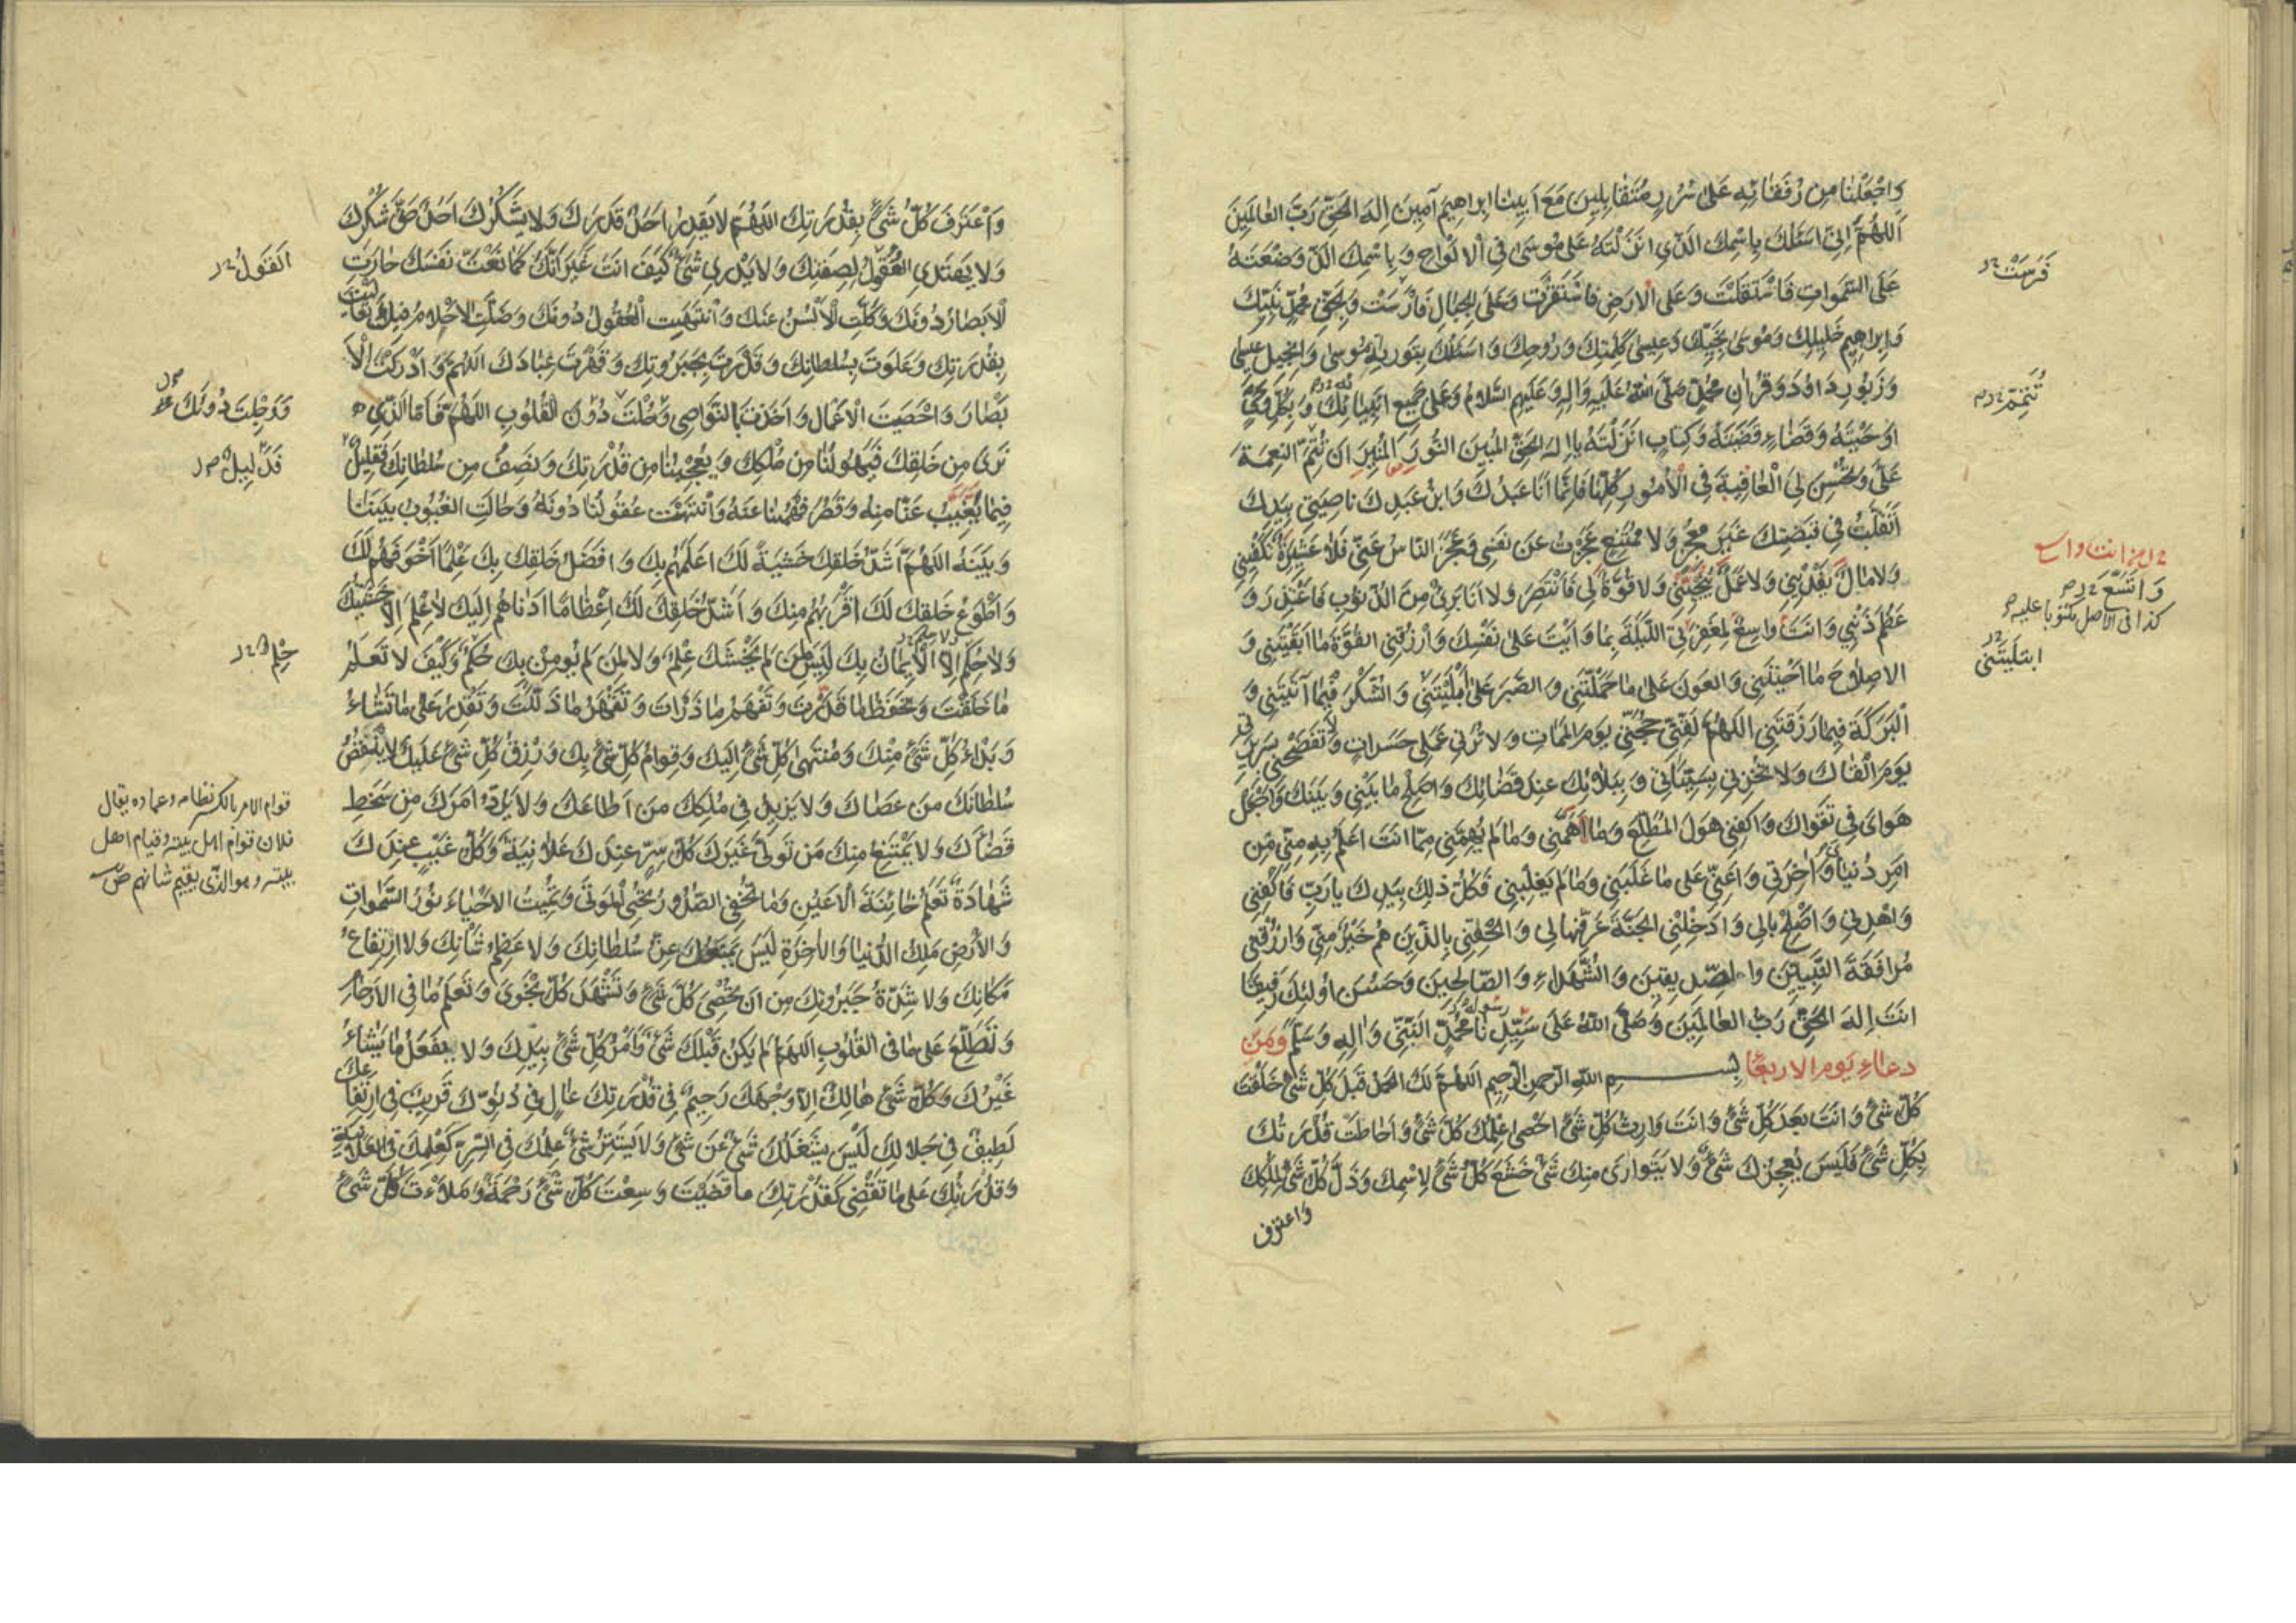 وَاجْعَلْنَا مِن رُفَقَائِهِ عَلٰى سُرُرٍ مُتَقَابِلِينَ مَعَ اَبِينَا اِبراهِيم آمِينَ اِلهَ الحَقِّ رَبَّ العٰالَمِينَ
اَللّهُمَّ اِنّي اَسئَلُكَ بِاسْمِكَ الَّذِي انَزَلْتَهُ عَلى مُوسىٰ فِي الاَلْوَاحِ وَبِاسْمِكَ الَّذِي وَضَعْتَهُ
عَلَى السَّمَواتِ فَاسْتَقَلَّتْ وَعَلَى الاَرضِ فَاسْتَقَرَّت وَعَلَى الجِبَالِ فَارْسَتْ وَبِحَقِّ مُحَمَّدٍ نَبِيِّكَ
وَابراهِيمَ خَلِيلِكَ وَمُوسىٰ نَجِيِّكَ وَعِيسىٰ كَلِمَتِكَ وَرُوحِكَ وَاَسئَلُكَ بِتَورِيةِ مُوسىٰ وَاِنْجِيلِ عِيسىٰ
وَزَبُورِ دَاوُدَ وَقُرْاٰنِ مُحَمَّدٍ صَلَّى اللّٰهُ عَلَيهِ وَالِهِ وَعَلَيهِمُ السَّلَامُ وَعَلى جَمِيعِ اَنبِيَائِكَ وَبِكُلِّ وَحْيٍ
اَوحَيْتَهُ وَقَضَاءٍ قَضَيْتَهُ وَكِتابٍ انزَلْتَهُ يا اِلهَ الحَقِّ المُبِينَ النُّورِ المُنِيرِ ان تُتِمَّ النِعمَةَ
عَلَيَّ وَتُحْسِنَ لِيَ الْعَافِيَةَ فِي الاُمُورِ كُلِّهَا فَاِنَّمَا اَنَا عَبْدُكَ وَابنُ عَبدِكَ ناصِيَتِي بِيَدِكَ
اَتَقَلَّبُ فِي قَبضَتِكَ غَيرَ مُعجِزٍ وَلا مُمْتَنِعٍ عَجَزتُ عَن نَفسِي وَعَجَزَ النَّاسُ عَنِّي فَلا عَشِيرَةَ تَكفِينِي
وَلا مالَ يَفْدِينِي وَلا عَمَلَ يُنْجِينِي وَلا قُوَّةَ لِي فَاَنْتَصِرَ وَلا انَا بَرِيءٌ مِنَ الذُّنُوبِ فَاَعْتَذِرَ وَ
عَظُمَ ذَنْبِي وَانتَ واسِعٌ لِمَغفِرَتِي اللَّيلَةَ بِمَا وَاَيْتَ عَلى نَفْسِكَ وَارزُقنِي القُوَّةَ مَا اَبقَيْتَنِي وَ
الاصلاحَ مَا اَحيَيْتَنِي وَالعَونَ عَلى ماحَمَّلْتَنِي وَالصَّبرَ عَلى اَبلَيْتَنِي وَالشُّكرَ فِيمَا آتَيتَنِي وَ
البَرَكَةَ فِيمَا رَزَقتَنِي اللهُمَّ لَقِّنِّي حُجَّتِي يَومَ المَمَاتِ وَلا تُرِنِي عَمَلِي حَسَراتٍ وَلا تَفضَحْنِي بِسَرِيرَتِي
يَومَ القَاكَ وَلا تُخزِنِي بِسَيِّئَاتِي وَبِبَلائِكَ عِندَ قَضَائِكَ وَاصْلِحْ مَا بَيْنِي وَبَينَكَ وَاجْعَل
هَواىَ فِي تَقوَاكَ وَاكفِنِي هَولَ المُطَّلَعِ وَمَا اَهَمَّنِي وَمَا لَم يُهِمَّنِي مِمّا انتَ اَعلَمُ بِهِ مِنّي مِن
اَمرِ دُنيَايَ وَاٰخِرَتِي وَاَعِنِّي عَلى ما غَلَبَنِي وَمَا لَم يَغلِبنِي فَكُلُّ ذلِكَ بِيَدِكَ يارَبِّ فَاكْفِنِي
وَاهْدِنِي وَاصْلِحْ بالِي وَادخِلْنِي الجَنَّةَ عَرَّفَهَا لِي وَالحِقْنِي بِالَّذِينَ هُم خَيْرٌ مِنّي وَارزُقنِي
مُرافَقَةَ النَّبِيِّينَ وَالصِّدِّيقِينَ وَالشُّهَداءِ وَالصَّالِحِينَ وَحَسُنَ اُولئِكَ رَفِيقًا
انتَ اِلهُ الحَقِّ رَبُّ العالَمِينَ وَصَلَّى اللّٰهُ عَلى سَيِّدِنَا رسوله مُحَمَّدٍ النَّبِيِّ وَالِهِ وَسَلَّم وَمِن
دعاءِ يَومِ الاربعاءِ بِسمِ اللّٰهِ الرَّحمنِ الرَّحِيمِ اللهُمَّ لَكَ الحَمدُ قَبلَ كُلِّ شَيْءٍ خَلَقتَ
كُلَّ شَيْءٍ وَانتَ بَعدَ كُلِّ شَيْءٍ وَانتَ وَارِثُ كُلِّ شَيْءٍ اَحصىٰ عِلمُكَ كُلَّ شَيْءٍ وَاَحاطَت قُدرَتُكَ
بِكُلِّ شَيْءٍ فَلَيسَ يُعجِزُكَ شَيْءٌ وَلا يَتَوارىٰ مِنكَ شَيْءٌ خَشَعَ كُلُّ شَيْءٍ لِاسمِكَ وَذَلَّ كُلُّ شَيْءٍ لِمُلْكِكَ
وَاعترف
فَرَسَتْ
تُتَمِّمَ
انت واسع
وَاتَّسَعَ
كذا فى الاصل مكتوبا عليه
ابتَلَيتَنى
وَاعْتَرَفَ كُلُّ شَيْءٍ بِقُدْرَتِكَ اللهُمَّ لا يَقدِرُ اَحَدٌ قَدرَكَ وَلا يَشْكُرُكَ اَحَدٌ حَقَّ شُكرِكَ
وَلا يَهتَدِي العُقُولُ لِصِفَتِكَ وَلا يَدْرِي شَيْءٌ كَيفَ انتَ غَيرَ اَنَّكَ كَمَا نَعَتَّ نَفسَكَ حارَتِ
الاَبصَارُ دُونَكَ وَكَلَّتِ الاَلسُنُ عَنكَ وَانْتَهَيتِ العُقُولُ دُونَكَ وَضَلَّتِ الاَحلامُ فِيكَ تَعَالَيتَ
بِقُدرَتِكَ وَعَلَوتَ بِسُلطانِكَ وَقَدَرتَ بِجَبَرُوتِكَ وَقَهَرتَ عِبَادَكَ اللهُمَّ وَادرَكتَ الاَ
بصَارَ وَاحْصَيتَ الاَعمَالَ وَاَخَذتَ بِالنَّواصِي وَحُلْتَ دُونَ القُلُوبِ اللهُمَّ فَاَمَّا الَّذِي
نَرىٰ مِن خَلقِكَ فَيَهُولُنَا مِن مُلكِكَ وَيُعجِبُنا مِن قُدرَتِكَ وَنَصِفُ مِن سُلطانِكَ فَقَلِيلٌ
فِيمَا يَغِيبُ عَنَّا مِنهُ وَقَصُرَ فَهْمُنا عَنهُ وَانْتَهَت عُقُولُنَا دُونَهُ وَحَالَتِ الغُيُوبُ بَينَنَا
وَبَينَهُ اللهُمَّ اَشَدُّ خَلقِكَ خَشيَةً لَكَ اَعلَمُهُم بِكَ وَافضَلُ خَلقِكَ بِكَ عِلمًا اَخوَفُهُم لَكَ
وَاَطْوَعُ خَلقِكَ لَكَ اَقرَبُهُم مِنكَ وَاَشَدُّ خَلقِكَ لَكَ اِعظَامًا اَدنَاهُم اِلَيكَ لا عِلمَ اِلّا خَشيَتُكَ
وَلا حِكَمَ اِلّا الاِيمَانُ بِكَ لَيسَ لِمَن لَم يَخْشَكَ عِلمٌ وَلا لِمَن لَم يُومِن بِكَ حُكمٌ وَكَيفَ لا تَعلَمُ
مَا خَلَقْتَ وَتَحفَظُ مَا قَدَّرتَ وَتَفهَمُ ما ذَرَأتَ وَتَقهَرُ ما ذَلَّلتَ وَتَقدِرُ عَلى مَا تَشَاءُ
وَبَدْءُ كُلِّ شَيْءٍ مِنكَ وَمُنتَهىٰ كُلِّ شَيْءٍ اِلَيكَ وَقِوامُ كُلِّ شَيْءٍ بِكَ وَرِزقُ كُلِّ شَيْءٍ عَلَيكَ لا يَنْقُصُ
سُلطانَكَ مَن عَصَاكَ وَلا يَزِيدُ فِي مُلكِكَ مَن اَطاعَكَ وَلا يَرُدُّ اَمرَكَ مَن سَخِطَ
قَضَاكَ وَلا يَمتَنِعُ مِنكَ مَن تَوَلّىٰ غَيرَكَ كُلُّ سِرٍّ عِندَكَ عَلانِيَةٌ وَكُلُّ غَيبٍ عِندَكَ
شَهَادَةٌ تَعلَمُ خائِنَةَ الاَعيُنِ وَمَا تُخفِي الصُّدُورُ تُحيِي المَوتىٰ وَتُمِيتُ الاَحيَاءَ نُورُ السَّمَواتِ
وَالاَرضِ مَلِكُ الدُّنيَا وَالاٰخِرَةِ لَيسَ يَمنَعُكَ عِزُّ سُلطانِكَ وَلا عِظَمُ شَانِكَ وَلا ارتِفاعُ
مَكانِكَ وَلا شِدَّةُ جَبَرُوتِكَ مِن ان تُحْصِيَ كُلَّ شَيْءٍ وَتَشْهَدَ كُلَّ نَجْوىٰ وَتَعلَمَ مَا فِي الاَرحَامِ
وَتَطَّلِعَ عَلى مَا فى القُلُوبِ اللهُمَّ لَم يَكُن قَبلَكَ شَيْءٌ وَاَمرُ كُلِّ شَيْءٍ بِيَدِكَ وَلا يَفعَلُ ما يَشَاءُ
غَيرُكَ وَكُلُّ شَيْءٍ هَالِكٌ اِلّا وَجهَكَ رَحِيمٌ فِي قُدرَتِكَ عَالٍ فِي دُنُوِّكَ قَرِيبٌ فِي ارتِفَاعِكَ
لَطِيفٌ فِي جَلالِكَ لَيْسَ يَشغَلُكَ شَيْءٌ عَن شَيْءٍ وَلا يَستَتِرُ شَيْءٌ عِلمُكَ فِي السِّرِّ كَعِلمِكَ فِي العَلانِيَةِ
وَقُدرَتُكَ عَلى مَا تَقضِي كَقُدرَتِكَ ما قَضَيتَ وَسِعْتَ كُلَّ شَيْءٍ رَحمَةً وَمَلأتَ كُلَّ شَيْءٍ
القَولُ
وَوَجِلَت دُونَكَ
حِلم
قوام الامر بالكسر نظامه وعماده يقال
فلان قوام اهل بيته وقيام اهل
بيته وهو الذى يقيم شانهم ص